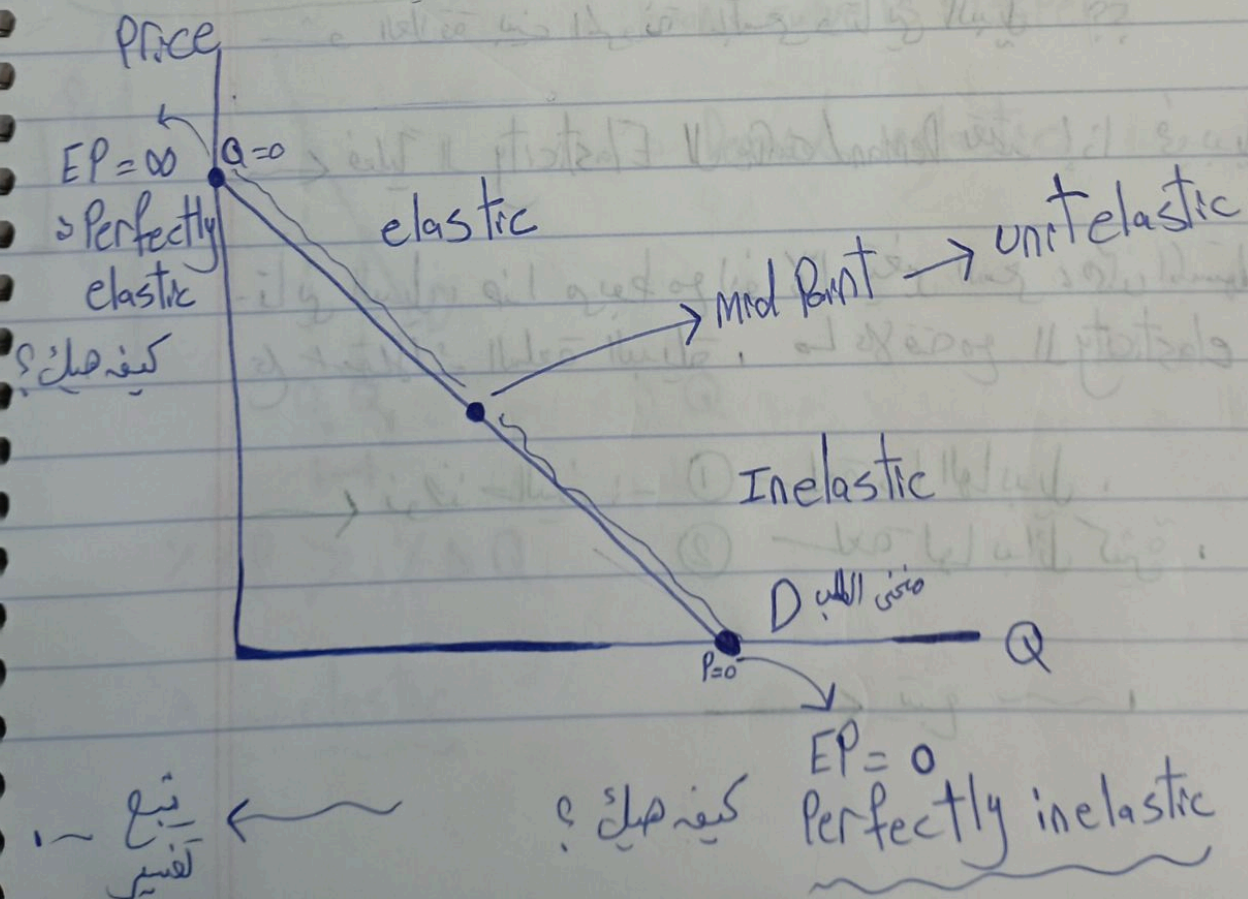 Price
EP = ∞
Q=0
Perfectly
elastic
كيف هيك؟
elastic
Mid Point → unit elastic
Inelastic
D منحنى الطلب
Q
P=0
EP = 0
Perfectly inelastic كيف هيك؟
يتبع
تفسير